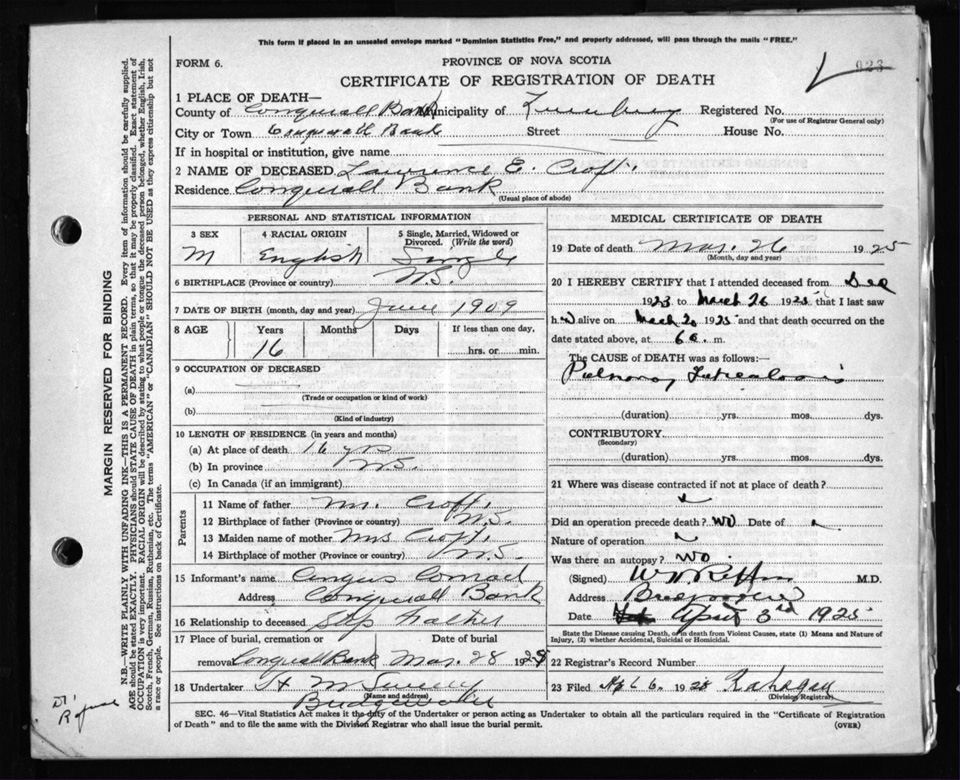 This form if placed in an unsealed envelope marked "Dominion Statistics Free," and properly addressed, will pass through the mails "FREE."
FORM 6.
PROVINCE OF NOVA SCOTIA
923
CERTIFICATE OF REGISTRATION OF DEATH
1 PLACE OF DEATH—
County of Conquerall Bank Municipality of Lunenburg Registered No.
(For use of Registrar General only)
City or Town Conquerall Bank Street House No.
If in hospital or institution, give name
2 NAME OF DECEASED Lawrence E. Croft
Residence Conquerall Bank
(Usual place of abode)
PERSONAL AND STATISTICAL INFORMATION
3 SEX 4 RACIAL ORIGIN 5 Single, Married, Widowed or Divorced. (Write the word)
M English Single
6 BIRTHPLACE (Province or country) N.S.
7 DATE OF BIRTH (month, day and year) June 1909
8 AGE Years Months Days If less than one day,
16 hrs. or min.
9 OCCUPATION OF DECEASED
(a)
(Trade or occupation or kind of work)
(b)
(Kind of industry)
10 LENGTH OF RESIDENCE (in years and months)
(a) At place of death 16 yrs
(b) In province N.S.
(c) In Canada (if an immigrant)
Parents
11 Name of father Mr. Croft
12 Birthplace of father (Province or country) N.S.
13 Maiden name of mother Mrs Croft
14 Birthplace of mother (Province or country) N.S.
15 Informant's name Angus Conrad
Address Conquerall Bank
16 Relationship to deceased Step Father
17 Place of burial, cremation or removal Date of burial
Conquerall Bank Mar. 28 1925
18 Undertaker
(Name and address)
Bridgewater
MEDICAL CERTIFICATE OF DEATH
19 Date of death Mar. 26 1925
(Month, day and year)
20 I HEREBY CERTIFY that I attended deceased from Dec
1923 to March 26 1925 that I last saw
h alive on March 20 1925 and that death occurred on the
date stated above, at 6 a. m.
The CAUSE of DEATH was as follows:—
Pulmonary Tuberculosis
(duration) yrs. mos. dys.
CONTRIBUTORY
(Secondary)
(duration) yrs. mos. dys.
21 Where was disease contracted if not at place of death?
Did an operation precede death? No Date of
Nature of operation
Was there an autopsy? No
(Signed) M.D.
Address Bridgewater
Date April 3rd 1925
State the Disease causing Death, or in death from Violent Causes, state (1) Means and Nature of Injury, (2) whether Accidental, Suicidal or Homicidal.
22 Registrar's Record Number
23 Filed 6 1925
(Division Registrar)
SEC. 46—Vital Statistics Act makes it the duty of the Undertaker or person acting as Undertaker to obtain all the particulars required in the "Certificate of Registration
of Death" and to file the same with the Division Registrar who shall issue the burial permit.
(OVER)
MARGIN RESERVED FOR BINDING
N.B.—WRITE PLAINLY WITH UNFADING INK—THIS IS A PERMANENT RECORD. Every item of information should be carefully supplied.
AGE should be stated EXACTLY. PHYSICIANS should STATE CAUSE OF DEATH in plain terms, so that it may be properly classified. Exact statement of
OCCUPATION is very important. RACIAL ORIGIN will be described by stating to what people or tongue the deceased person belonged, whether English, Irish,
Scotch, French, German, Russian, Ruthenian, etc. The terms "AMERICAN" or "CANADIAN" SHOULD NOT BE USED as they express citizenship but not
a race or people. See instructions on back of Certificate.